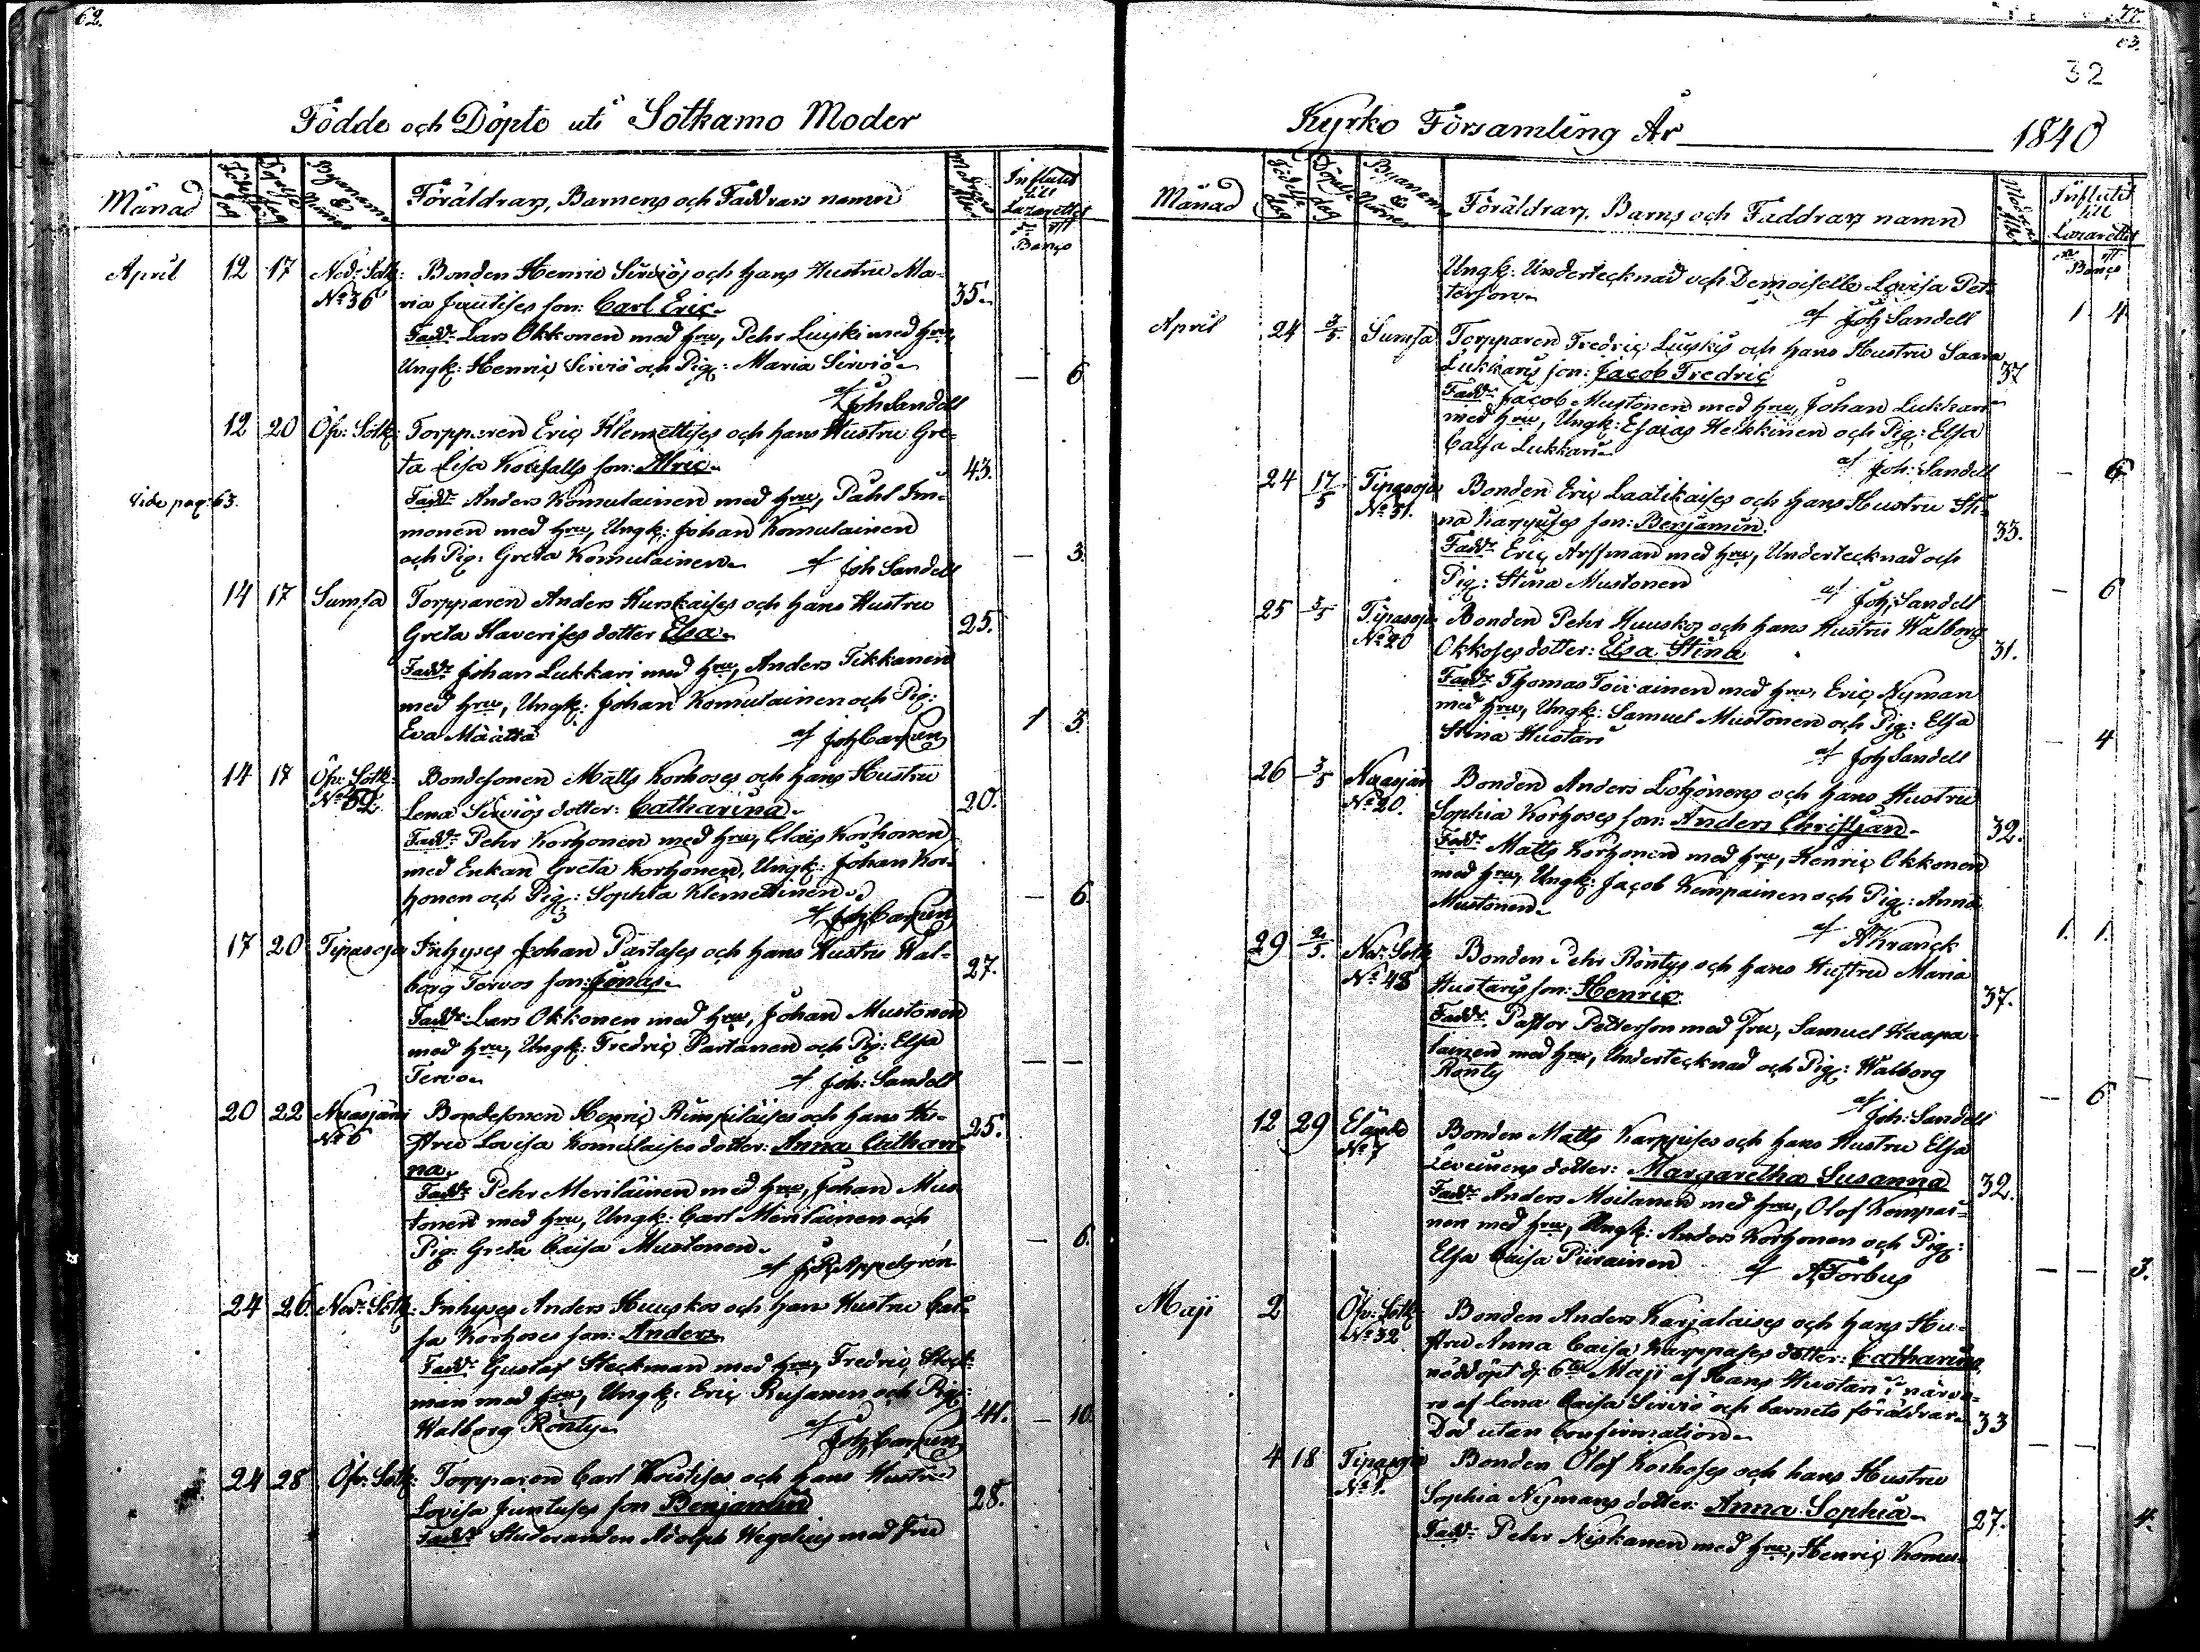 62.
Födde och Döpte uti Sotkamo Moder
Månad
Födelse dag
Döpelse dag
Byanamn & Numer
Föräldrars, Barnens och Faddrars namn
Modrens Ålder
Influtit till Lazarettet
Banço
April 12 17 Ned: Sotk: Bonden Henric Sirviös och hans Hustru Ma-
No 36 ria Juutises son: Carl Eric 35.
Fadd: Lars Okkonen med hru, Pehr Luiski med hru,
Ungk: Henric Sirviö och Pig: Maria Sirviö
— 6
af Joh Sandell
12 20 Öfv: Sotk: Torpparen Eric Klemettises och hans Hustru Gre-
ta Lisa son: Alric 43.
vide pag: 63. Fadd: Anders Komulainen med hru, Påhl Im-
monen med hru, Ungk: Johan Komulainen
och Pig: Greta Komulainen af Joh Sandell — 3.
14 17 Sumsa Torpparen Anders Kurkaises och hans Hustru
Greta Haverises dotter Elsa 25.
Fadd: Johan Lukkari med hru, Anders Tikkanen
med hru, Ungk: Johan Komulainen och Pig:
Eva Määttä af Joh Carlsen 1 3.
14 17 Öfv: Sotk: Bondesonen Matts Korhoses och hans Hustru
No 52 Lena Sirviös dotter: Catharina 20.
Fadd: Pehr Korhonen med hru, Claës Korhonen
med Enkan Greta Korhonen, Ungk: Johan Kor-
honen och Pig: Sophia Klemettinen — 6.
af Joh Carlsen
17 20 Tipasoja Inhyses Johan Partases och hans Hustru Wal-
borg Tervos son: Jonas 27.
Fadd: Lars Okkonen med hru, Johan Mustonen
med hru, Ungk: Fredric Partanen och Pig: Elsa
Tervo af Joh: Sandell — —
20 22 Nuasjärvi Bondesonen Henric Rimpiläises och hans Hu-
No 6 stru Lovisa Komulaises dotter: Anna Cathari- 25.
na
Fadd: Pehr Meriläinen med hru, Johan Mus-
tonen med hru, Ungk: Carl Meriläinen och
Pig: Greta Caisa Mustonen — 6.
af J. R. Appelgrén
24 26. Ned: Sotk: Inhyses Anders Huuskos och hans Hustru Cai-
sa Korhoses son: Anders
Fadd: Gustaf Steckman med hru, Fredric Steck-
man med hru, Ungk: Eric Rusanen och Pig:
Walborg Rönty 44. — 10.
af Joh Carlsen
24 28 Öfv: Sotk: Torpparen Carl Koistises och hans Hustru
Lovisa Juntuses son Benjamin 28.
Fadd: Studeranden Adolph Wegelius med Fru
77.
63.
32
Kyrko Församling År 1840
Månad
Födelse dag
Döpelse dag
Byanamn & Numer
Föräldrars, Barns och Faddrars namn
Modrens Ålder
Influtit till Lazarettet
Banço
Ungk: Undertecknad och Demoiselle Lovisa Pet-
terson
af Joh Sandell 1 4
April 24 3/5. Sumsa Torpparen Fredric Luiskis och hans Hustru Saara
Lukkaris son: Jacob Fredric 37
Fadd: Jacob Mustonen med hru, Johan Lukkari
med hru, Ungk: Esaias Heikkinen och Pig: Elsa
Caisa Lukkari
af Joh: Sandell — 6
24 17/5 Tipasoja Bonden Eric Laatikaises och hans Hustru Sti-
No 31. na Karppises son: Benjamin. 33.
Fadd: Eric Arffman med hru, Undertecknad och
Pig: Stina Mustonen
af Joh: Sandell — 6
25 5/5 Tipasoja Bonden Pehr Huuskos och hans Hustru Walborg
No 20 Okkoses dotter: Elsa Stina 31.
Fadd: Thomas Toivainen med hru, Eric Nyman
med hru, Ungk: Samuel Mustonen och Pig: Elsa
Stina Hustari — 4
af Joh Sandell
26 3/5 Nuasjärvi Bonden Anders Löthönens och hans Hustru
No 20. Sophia Korhoses son: Anders Christian 32.
Fadd: Matts Korhonen med hru, Henric Okkonen
med hru, Ungk: Jacob Kempainen och Pig: Anna
Mustonen
af A Kranck 1. 1.
29 2/5. Ned: Sotk: Bonden Pehr Röntys och hans Hustru Maria
No 48 Hustaris son: Henric 37.
Fadd: Pastor Petterson med Fru, Samuel Haapa-
lainen med hru, Undertecknad och Pig: Walborg
Rönty
af Joh: Sandell — 6
12 29 Bonden Matts Karppises och hans Hustru Elsa
No 7 Leveinens dotter: Margaretha Susanna 32.
Fadd: Anders Moilanen med hru, Olof Kempai-
nen med hru, Ungk: Anders Korhonen och Pig:
Elsa Caisa Piirainen af A Forbus — — 3.
Maji 2 Öfv: Sotk: Bonden Anders Karjalaises och hans Hu-
No 32 stru Anna Caisa Karppases dotter: Catharina,
nöddöpt d: 6te Maji af Hans Hustari i närva-
ro af Lena Caisa Sirviö och barnets föräldrar. 33
Död utan Confirmation — —
4 18 Tipasoja Bonden Olof Korhoses och hans Hustru
No 1. Sophia Nymans dotter: Anna Sophia 27. 4.
Fadd: Pehr Niskanen med hru, Henric Komu-